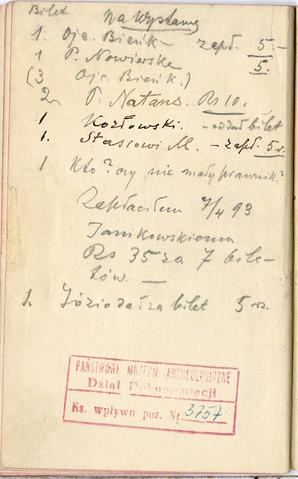 Bilet na Wystawę
1. Ojc. Bieńk zapł. 5.-
1 P. Nowierska 5.
(3 Ojc. Bieńk.)
2. P. Natans. Rs 10.
1 Kozłowski. - oddał bilet
1. Stasiowi M. - zapł. 5 rs.
1 Kto? czy nie mały prawnik?
Zapłaciłem 7/4 93
Janikowskiemu
Rs 35 za 7 bile-
tów. —
1. Józio dał za bilet 5 rs.
PAŃSTWOWE MUZEUM ARCHEOLOGICZNE
Dział Dokumentacji
Ks. wpływu poz. Nr. 3757